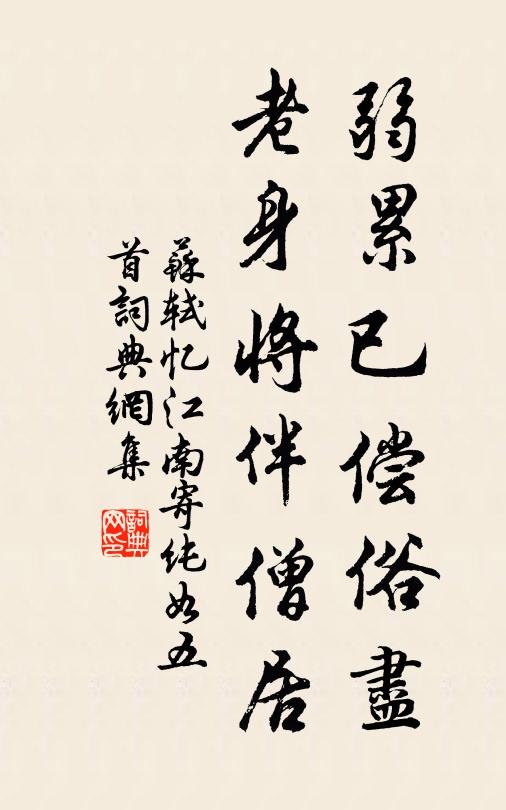 弱累已偿俗盡
老身将伴僧居
蘇轼忆江南寄纯如五
首詞典網集
詞典
网印